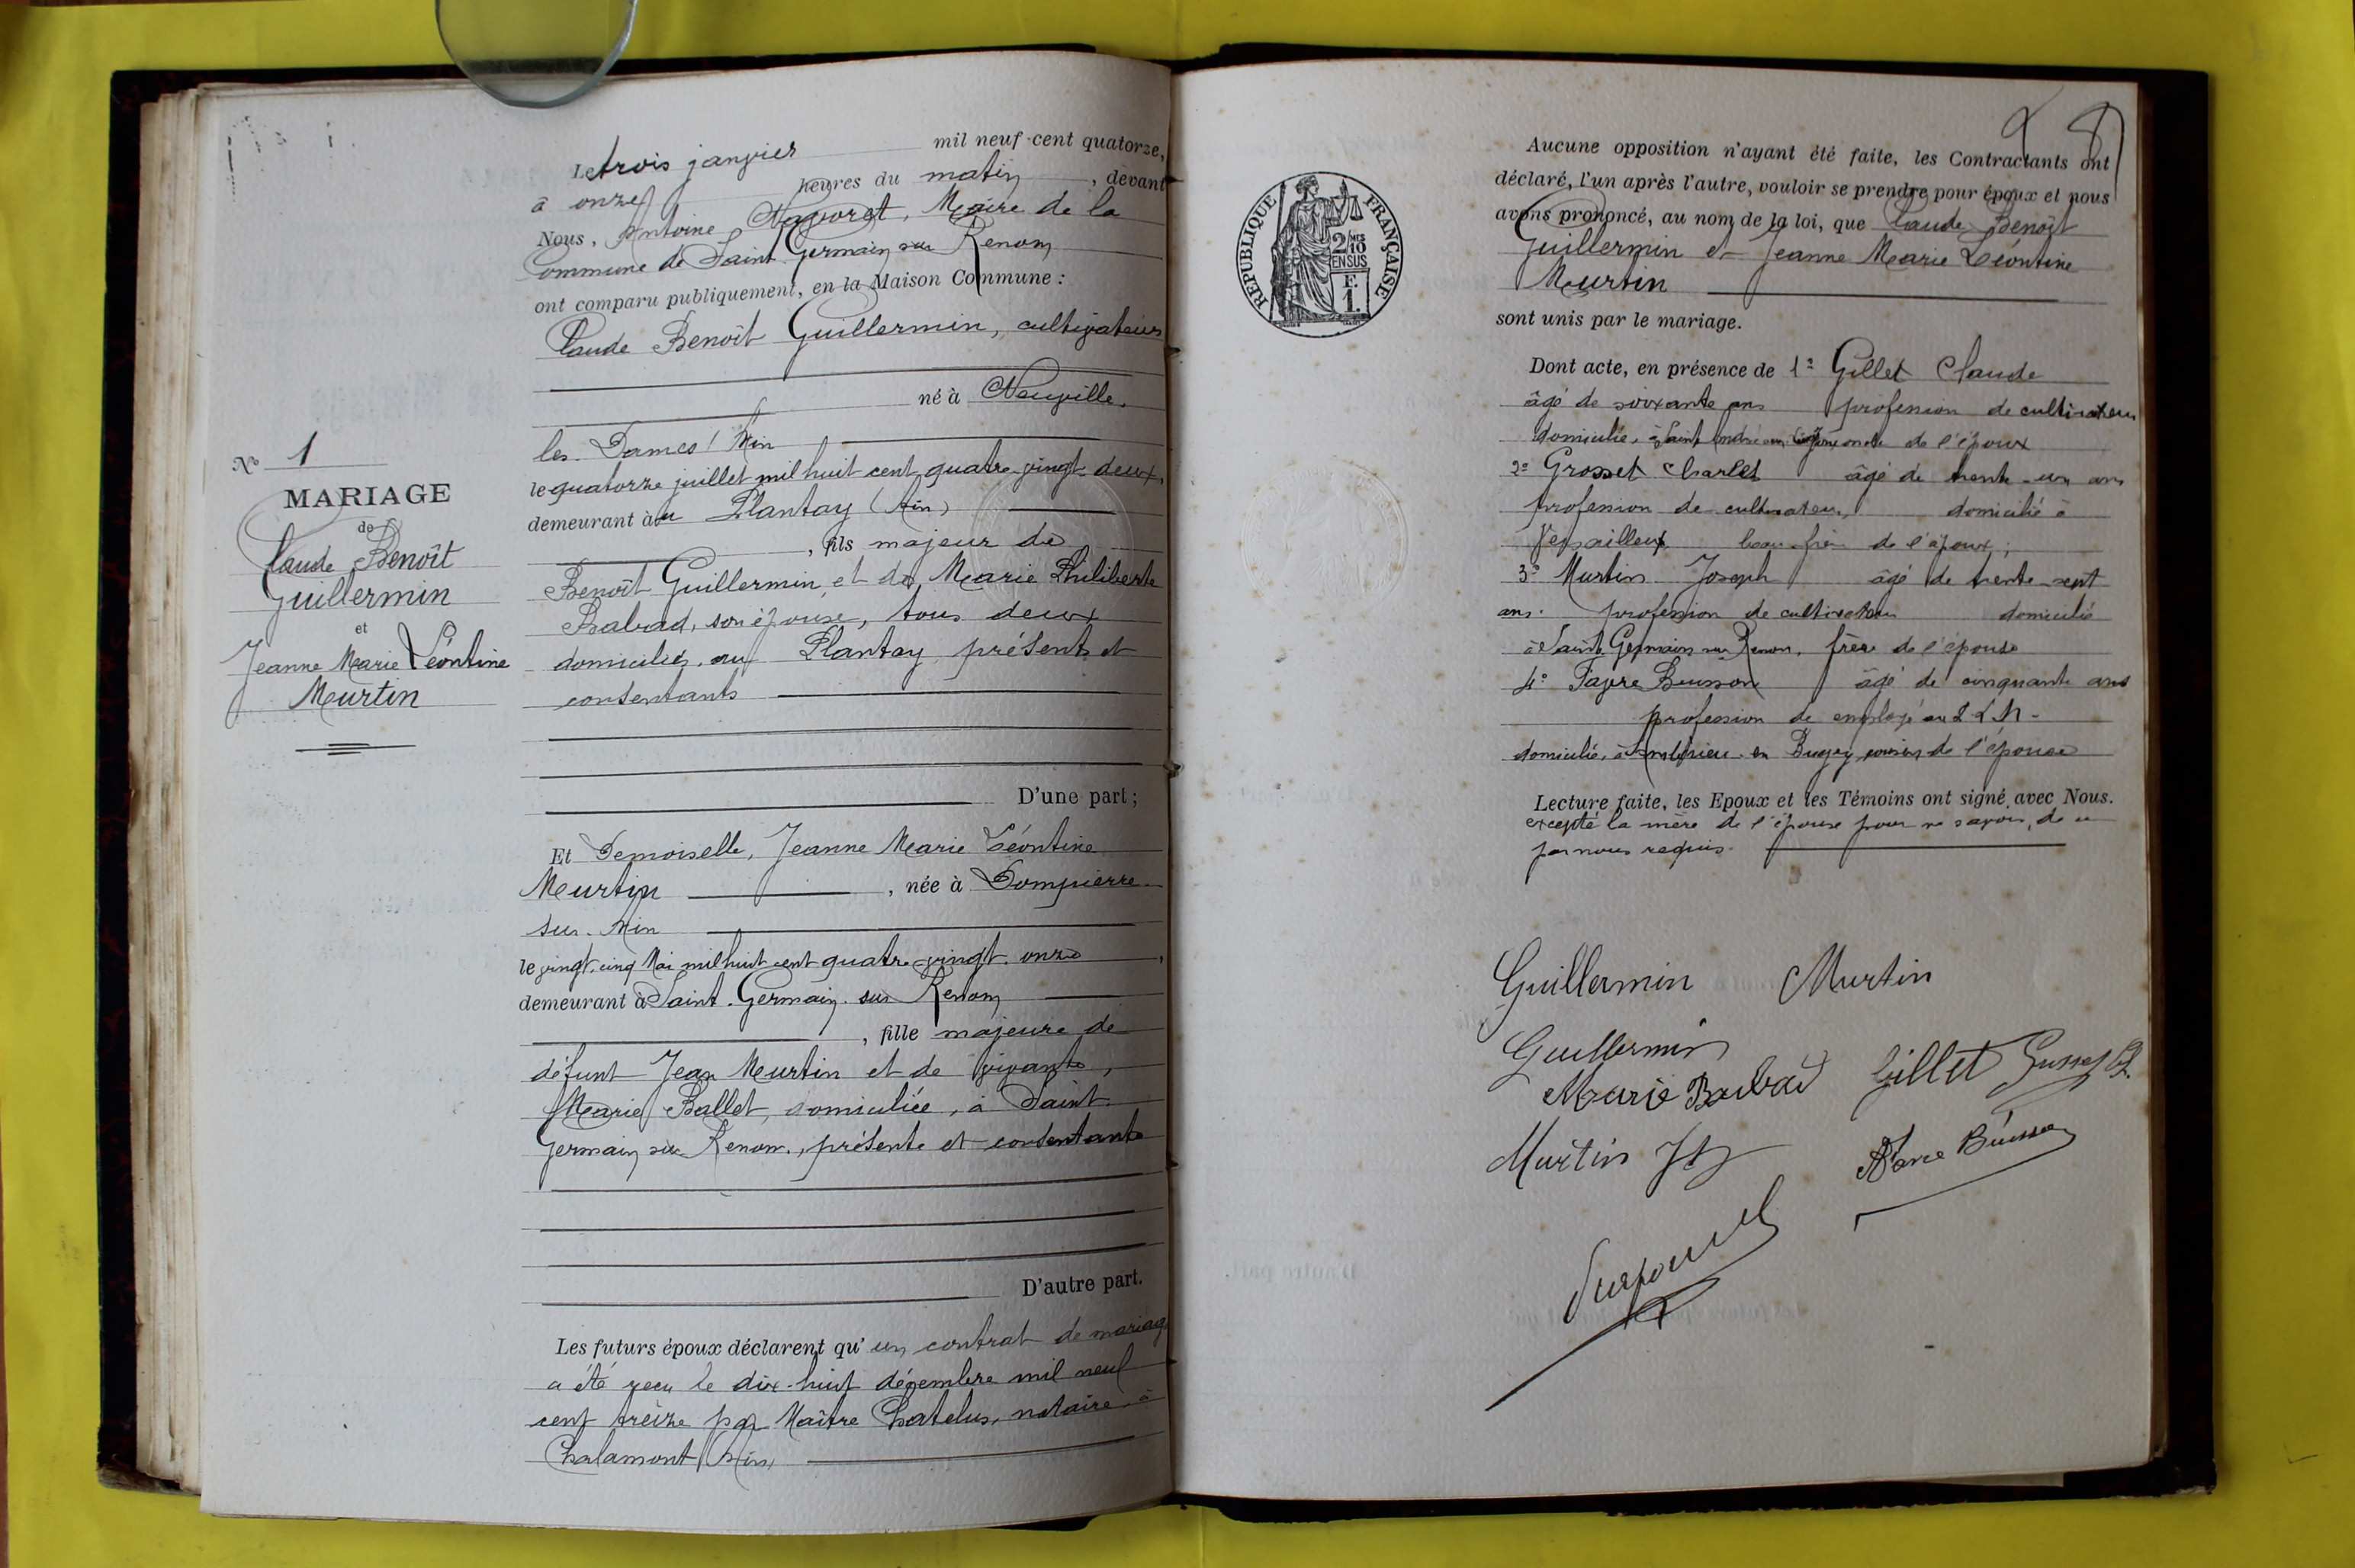 Le trois janvier mil neuf cent quatorze,
à onze heures du matin, devant
Nous, Antoine Mayoret, Maire de la
Commune de Saint Germain sur Renom
ont comparu publiquement, en la Maison Commune :
Claude Benoît Guillermin, cultivateur
né à Neuville
les Dames Ain
le quatorze juillet mil huit cent quatre-vingt deux,
demeurant au Plantay (Ain)
, fils majeur de
Benoît Guillermin, et de Marie Philiberte
Babad, son épouse, tous deux
domiciliés au Plantay présents et
consentants
D'une part ;
Et Demoiselle, Jeanne Marie Léontine
Murtin, née à Dompierre
sur Ain
le vingt cinq Mai mil huit cent quatre-vingt onze,
demeurant à Saint Germain sur Renom
, fille majeure de
défunt Jean Murtin et de vivante,
Marie Ballet, domiciliée, à Saint
Germain sur Renom, présente et consentante
D'autre part.
Les futurs époux déclarent qu'un contrat de mariage
a été reçu le dix-huit décembre mil neuf
cent treize par Maître Chatelus, notaire à
Chalamont (Ain)
No 1
MARIAGE
de
Claude Benoît
Guillermin
et
Jeanne Marie Léontine
Murtin
RÉPUBLIQUE FRANÇAISE
2/10 MES
EN SUS
F.
1.
Aucune opposition n'ayant été faite, les Contractants ont
déclaré, l'un après l'autre, vouloir se prendre pour époux et nous
avons prononcé, au nom de la loi, que Claude Benoît
Guillermin et Jeanne Marie Léontine
Murtin
sont unis par le mariage.
Dont acte, en présence de 1° Gillet Claude
âgé de soixante ans profession de cultivateur
domicilié, à Saint André oncle de l'époux
2° Grosset Charles âgé de trente-un ans
profession de cultivateur, domicilié à
Versailleux beau-frère de l'époux ;
3° Murtin Joseph âgé de trente-sept
ans. profession de cultivateur domicilié
à Saint Germain sur Renom, frère de l'épouse
4° Favre Buisson âgé de cinquante ans
profession de employé au P L M
domicilié, à Ambérieu en Bugey, cousin de l'épouse
Lecture faite, les Epoux et les Témoins ont signé avec Nous.
excepté la mère de l'épouse pour ne savoir, de ce
par nous requis.
Guillermin Murtin
Guillermin
Marie Babad Gillet
Murtin Favre Buisson